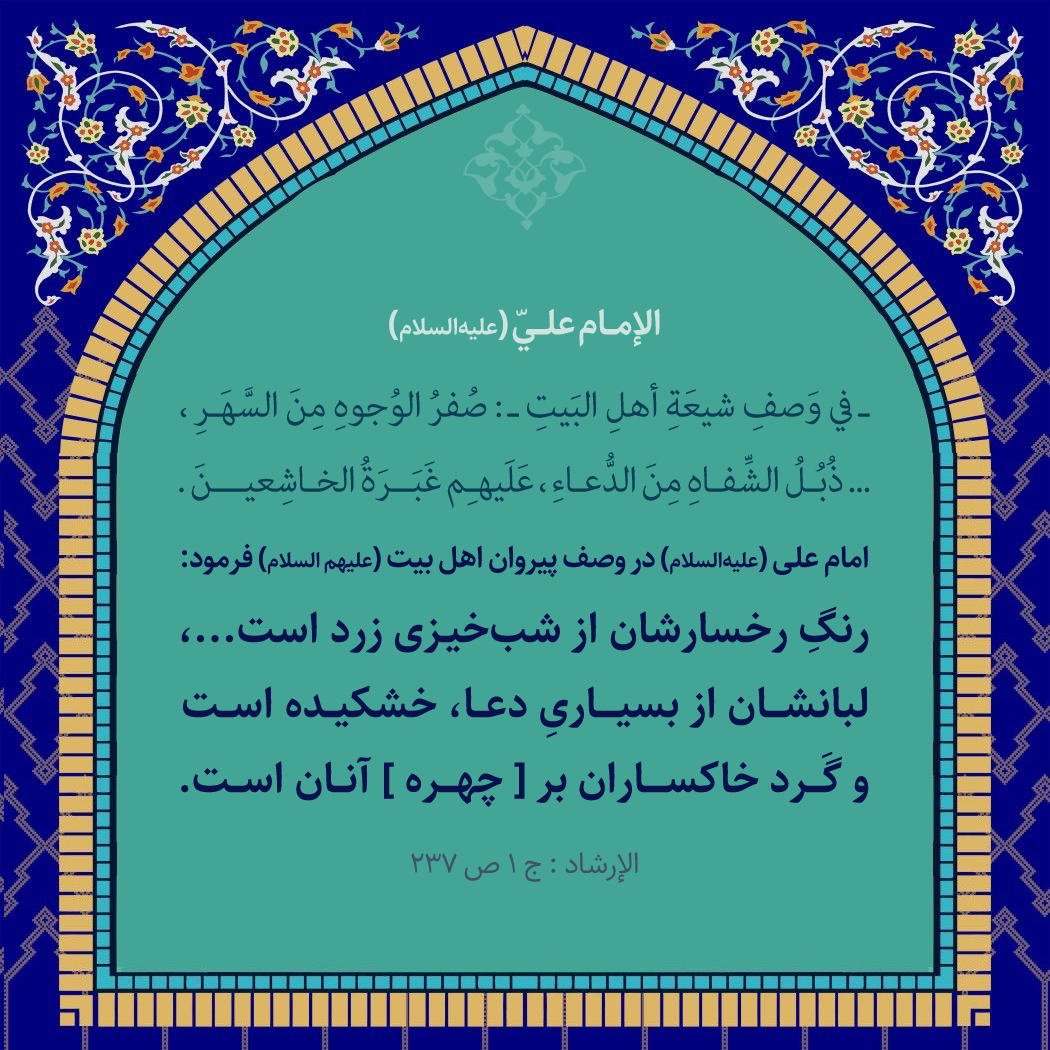 الإمـام علـيّ (علیه‌السلام)
ـ في وَصفِ شيعَةِ أهلِ البَيتِ ـ : صُفرُ الوُجوهِ مِنَ السَّهَـرِ ،
... ذُبُـلُ الشِّفـاهِ مِنَ الدُّعـاءِ ، عَلَيهِـم غَبَــرَةُ الخـاشِعيــــنَ .
امام علی (علیه‌السلام) در وصف پیروان اهل بیت (علیهم السلام) فرمود:
رنگِ رخسارشان از شب‌خیـزی زرد است...،
لبانشـان از بسیــاریِ دعـا، خشکیـده اسـت
و گَـرد خاکســاران بر [ چهـره ] آنـان اسـت.
الإرشاد : ج ۱ ص ۲۳۷